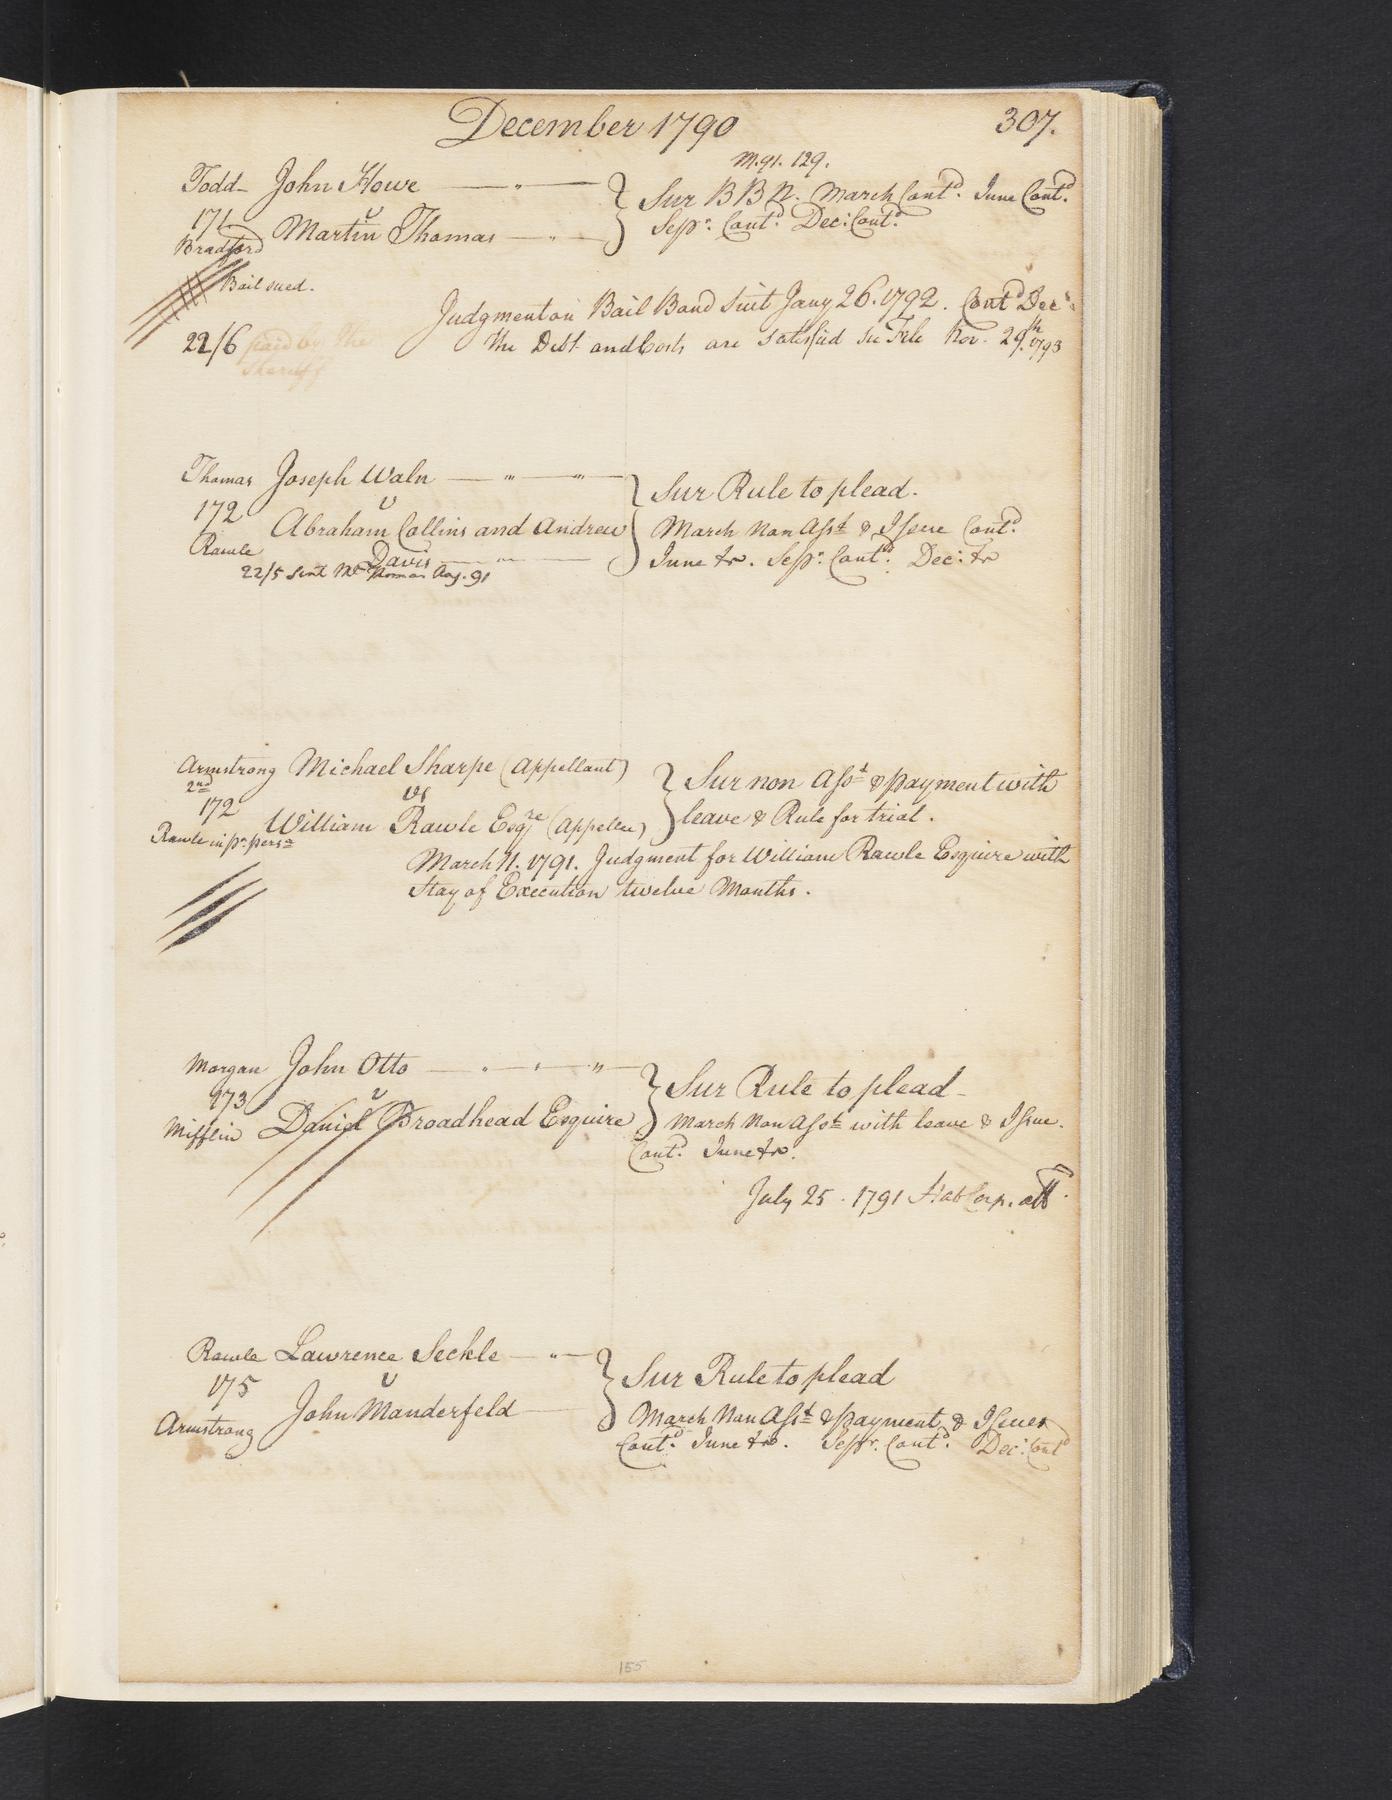 December 1790
307.
M. 91. 129.
Todd- John Howe
Sur B B N. March Cont.d June Cont.d
171 v
Bradford Martin Thomas
Sepr. Cont.d Dec: Cont.d
Bail sued.
Judgment on Bail Bond Suit Jany 26. 1792. Cont.d Dec:
22/6 paid by the
Sheriff
the Debt and Costs are satisfied see File Nov. 29.th 1793
Thomas Joseph Waln
Sur Rule to plead.
172 v
Abraham Collins and Andrew
March Non Asst & Issue Cont.d
Rawle Davis
June to. Sepr. Cont.d Dec: to
22/5 sent Mr Thomas Aug. 91
Armstrong Michael Sharpe (Appellant)
Sur non Asst & payment with
2nd
172 vs
William Rawle Esqre (Appellee)
leave & Rule for trial.
Rawle in pr. persn
March 11. 1791. Judgment for William Rawle Esquire with
Stay of Execution twelve Months.
Morgan John Otto
Sur Rule to plead-
173 v
Mifflin Daniel Broadhead Esquire
March Non Asst with leave & Issue.
Cont.d June to.
July 25. 1791 Hab Corp. all
Rawle Lawrence Seckle
Sur Rule to plead
175 v
Armstrong John Manderfeld
March Non Asst & payment & Issues
Cont.d June to. Sepr. Cont.d Dec: Cont.d
155